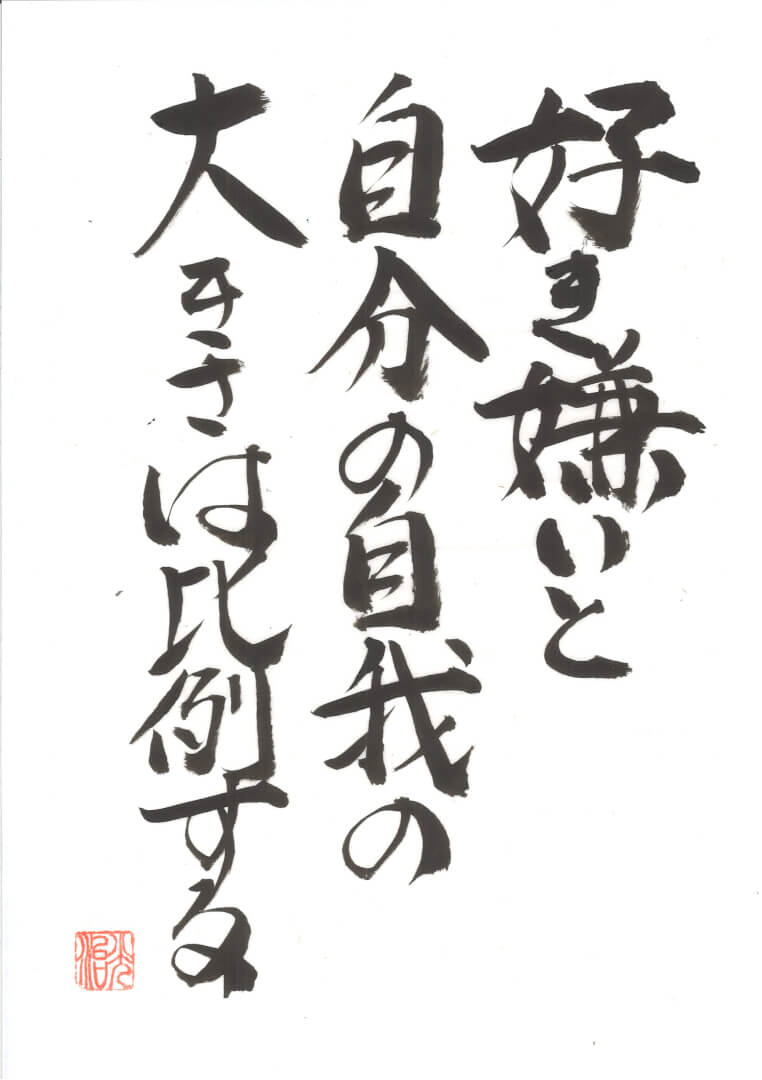 好き嫌いと
自分の自我の
大きさは比例する